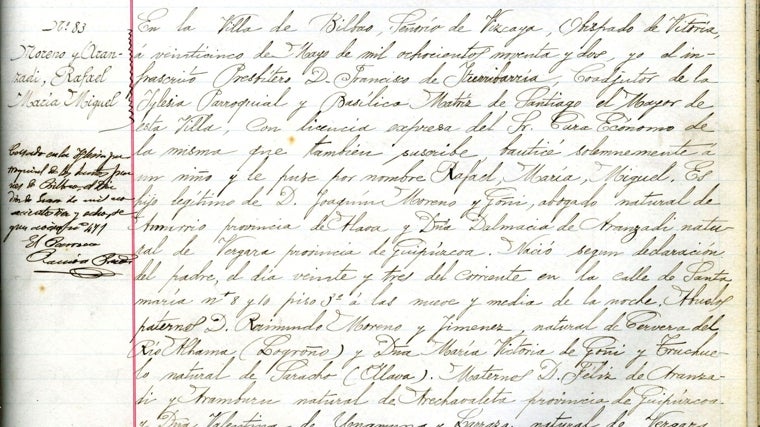 Nº 83
Moreno y Aran-
zadi, Rafael
Maria Miguel
Casado en la Iglesia par
roquial de los Santos Jua
nes de Bilbao, el
de mil no
y ocho, se
gun nº 471
El Parroco
En la Villa de Bilbao, Señorio de Vizcaya, Obispado de Vitoria,
á veinticinco de Mayo de mil ochocientos noventa y dos, yo el in-
frascrito Presbitero D. Francisco de Iturribarria, Coadjutor de la
Iglesia Parroquial y Basílica Matriz de Santiago el Mayor de
esta Villa, con licencia expresa del Sr. Cura Ecónomo de
la misma que tambien suscribe bauticé solemnemente á
un niño y le puse por nombre Rafael, Maria, Miguel. Es
hijo legítimo de D. Joaquín Moreno y Goñi, abogado natural de
Amurrio provincia de Alava y Dña Dalmacia de Aranzadi natu-
ral de Vergara provincia de Guipúzcoa. Nació segun declaración
del padre, el día veinte y tres del corriente en la calle de Santa
maria nº 8 y 10 piso 3º á las nueve y media de la noche. Abuelos
paternos D. Raimundo Moreno y Jimenez natural de Cervera del
Río Alhama (Logroño) y Dña María Vitoria de Goñi y Truchue-
lo natural de Saracho (Alava). Maternos D. Félix de Aranza-
di y Aramburu natural de Arechavaleta provincia de Guipúzcoa
y Dña Valentina de Unamuno y Larraza natural de Vergara